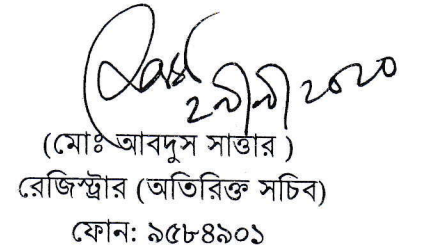 ২৯/৯/২০২০
(মোঃ আবদুস সাত্তার )
রেজিস্ট্রার (অতিরিক্ত সচিব)
ফোন: ৯৫৮৪৯০১